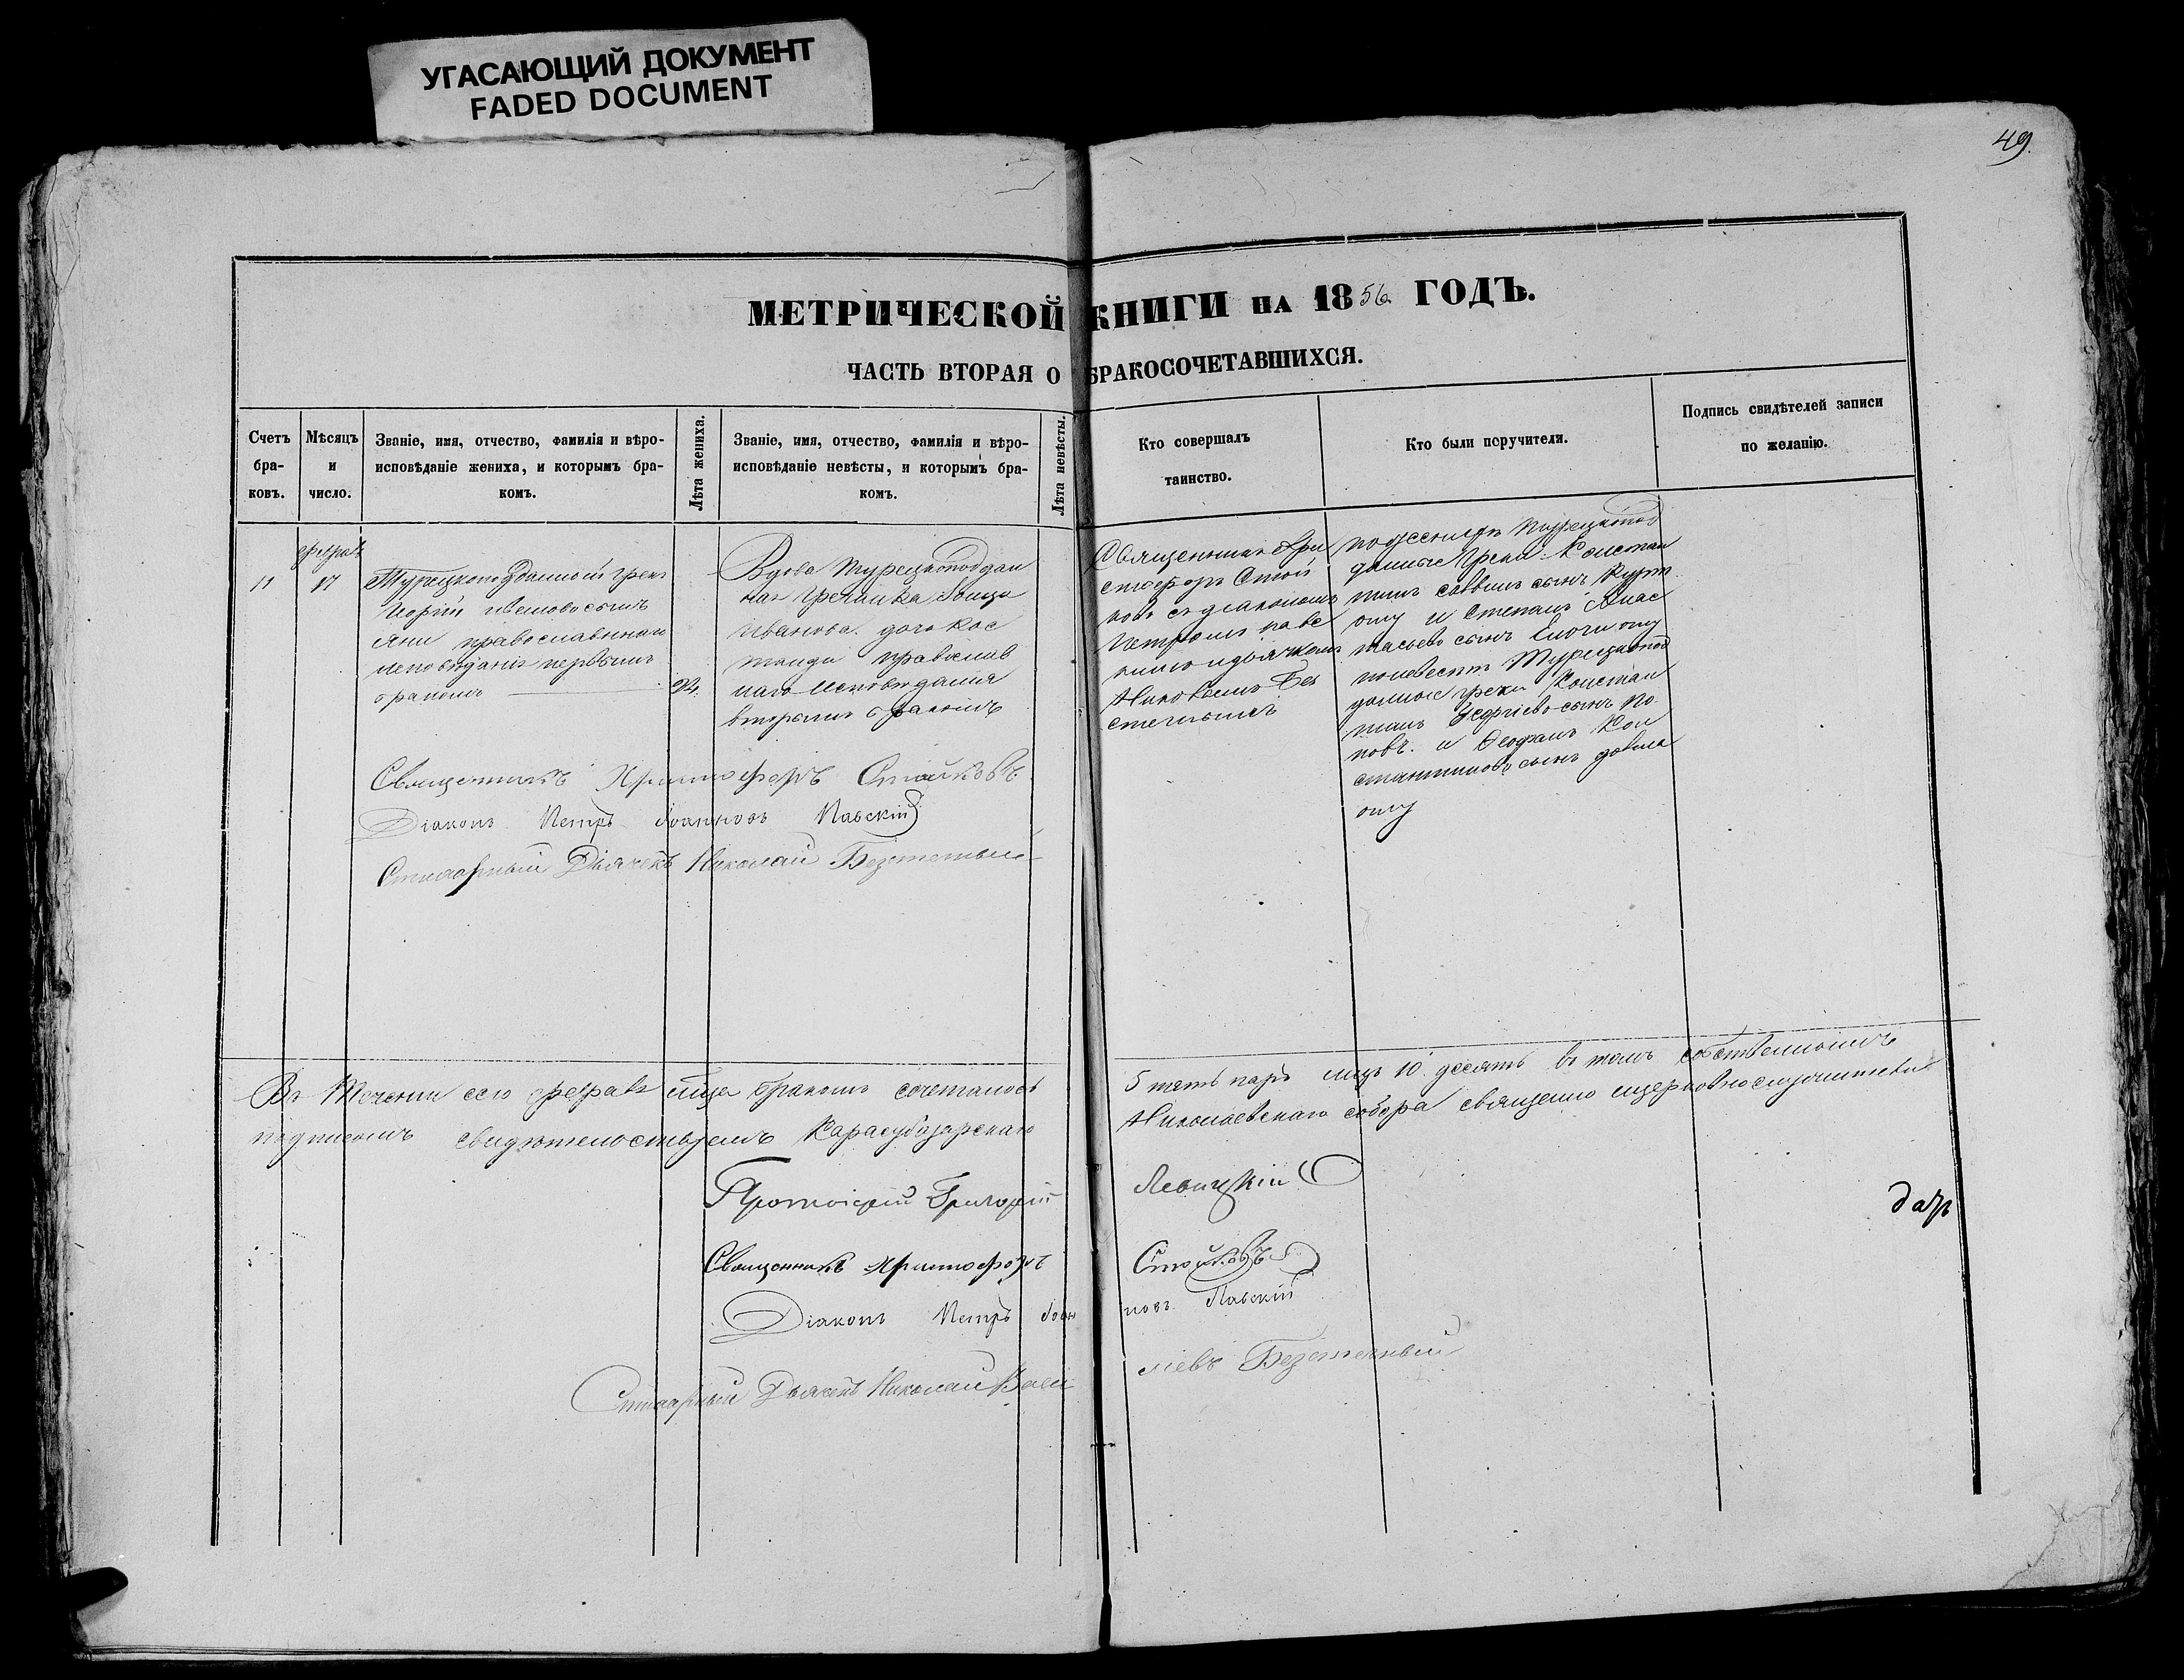 УГАСАЮЩИЙ ДОКУМЕНТ
FADED DOCUMENT
49.
МЕТРИЧЕСКОЙ КНИГИ НА 1856 ГОДЪ.
ЧАСТЬ ВТОРАЯ О БРАКОСОЧЕТАВШИХСЯ.
Счетъ
бра-
ковъ.
Мѣсяцъ
и
число.
Званіе, имя, отчество, фамилія и вѣро-
исповѣданіе жениха, и которымъ бра-
комъ.
Лѣта жениха.
Званіе, имя, отчество, фамилія и вѣро-
исповѣданіе невѣсты, и которымъ бра-
комъ.
Лѣта невѣсты.
Кто совершалъ
таинство.
Кто были поручители.
Подпись свидѣтелей записи
по желанію.
11
феврал
17
Турецкоподданный грек
сынъ
Яни православнаго
исповѣданія первымъ
бракомъ
24.
Вдова Турецкоподдан
ная Гречанка
Иванова дочь Кос
танди православ
наго исповѣданія
вторымъ бракомъ
Священникъ Хри
стофоръ Стой
ковъ съ діакономъ
Петромъ Павс
кимъ и дьячкомъ
Николаемъ Без
по женихѣ Турецкопод
данные Греки Констан
тинъ Саввинъ сынъ
оглу и Степанъ Анас
тасьевъ сынъ оглу
по невестѣ Турецкопод
данные греки Констан
тинъ Георгіевъ сынъ По
повъ. и Феофанъ Кон
стантиновъ сынъ
оглу
Священникъ Христофоръ Стойковъ
Діаконъ Петръ Іоанновъ Павскій
Стихарный Дьячекъ Николай
Въ Теченіи сего февраля мѣсяца бракомъ сочеталось
5 пять паръ лицъ 10 десять въ томъ собственнымъ
подписомъ свидѣтельствуемъ Карасубазарскаго
Николаевскаго собора священно церковнослужители
Протоіерей Григорій
Левицкій
Священникъ Христофоръ
Стойковъ
Діаконъ Петръ Іоан
новъ Павскій
Стихарный Дьячекъ Николай Васи
ліевъ